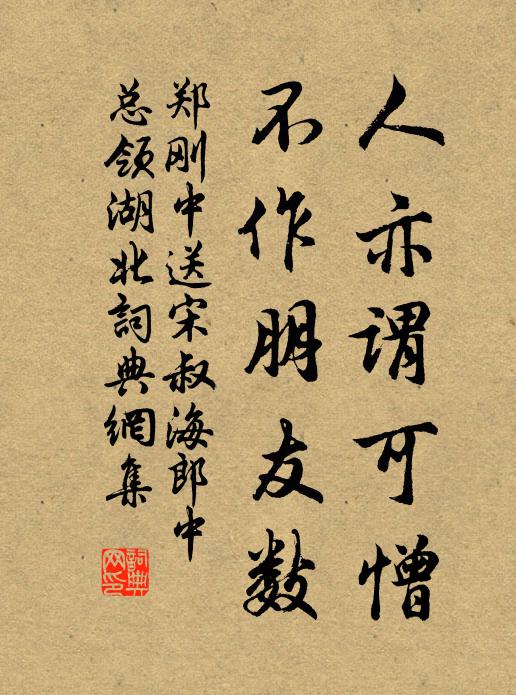 人亦谓可憎
不作朋友数
郑刚中送宋叔海郎中
总领湖北詞典網集
詞典
网印